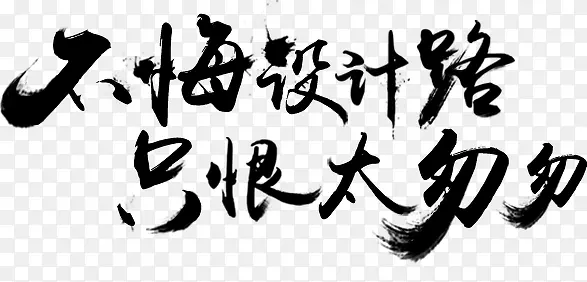 不悔设计路
只恨太匆匆